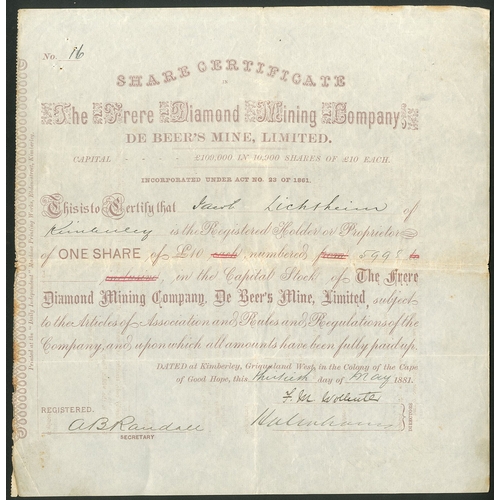 No. 16
SHARE CERTIFICATE
IN
The Frere Diamond Mining Company,
DE BEER'S MINE, LIMITED.
CAPITAL - - - - £100,000 IN 10,000 SHARES OF £10 EACH.
INCORPORATED UNDER ACT NO. 23 OF 1861.
This is to Certify that Jacob Lichtheim of
Kimberley is the Registered Holder or Proprietor
of ONE SHARE of £10 each, numbered from 5998 to
inclusive, in the Capital Stock of The Frere
Diamond Mining Company, De Beer's Mine, Limited, subject
to the Articles of Association and Rules and Regulations of the
Company, and upon which all amounts have been fully paid up.
DATED at Kimberley, Griqualand West, in the Colony of the Cape
of Good Hope, this thirtieth day of May 1881.
REGISTERED.
A B Randall
SECRETARY
F. M. Wolhuter
DIRECTORS
Printed at the "Daily Independent" Machine Printing Works, Kimberley.